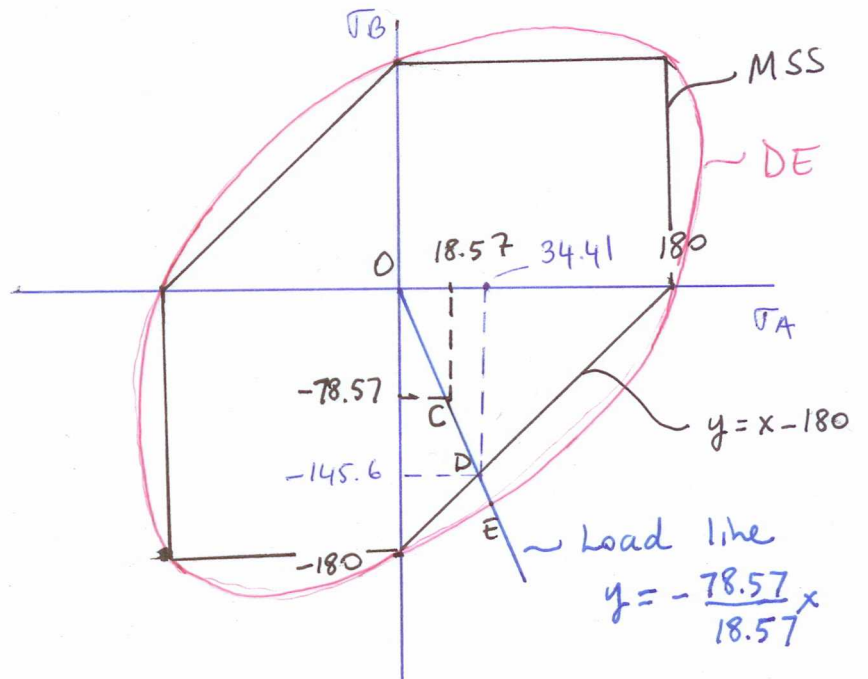 σB
MSS
DE
O
18.57
34.41
180
σA
-78.57
C
y = x - 180
-145.6
D
E
-180
Load line
y = - 78.57/18.57 x